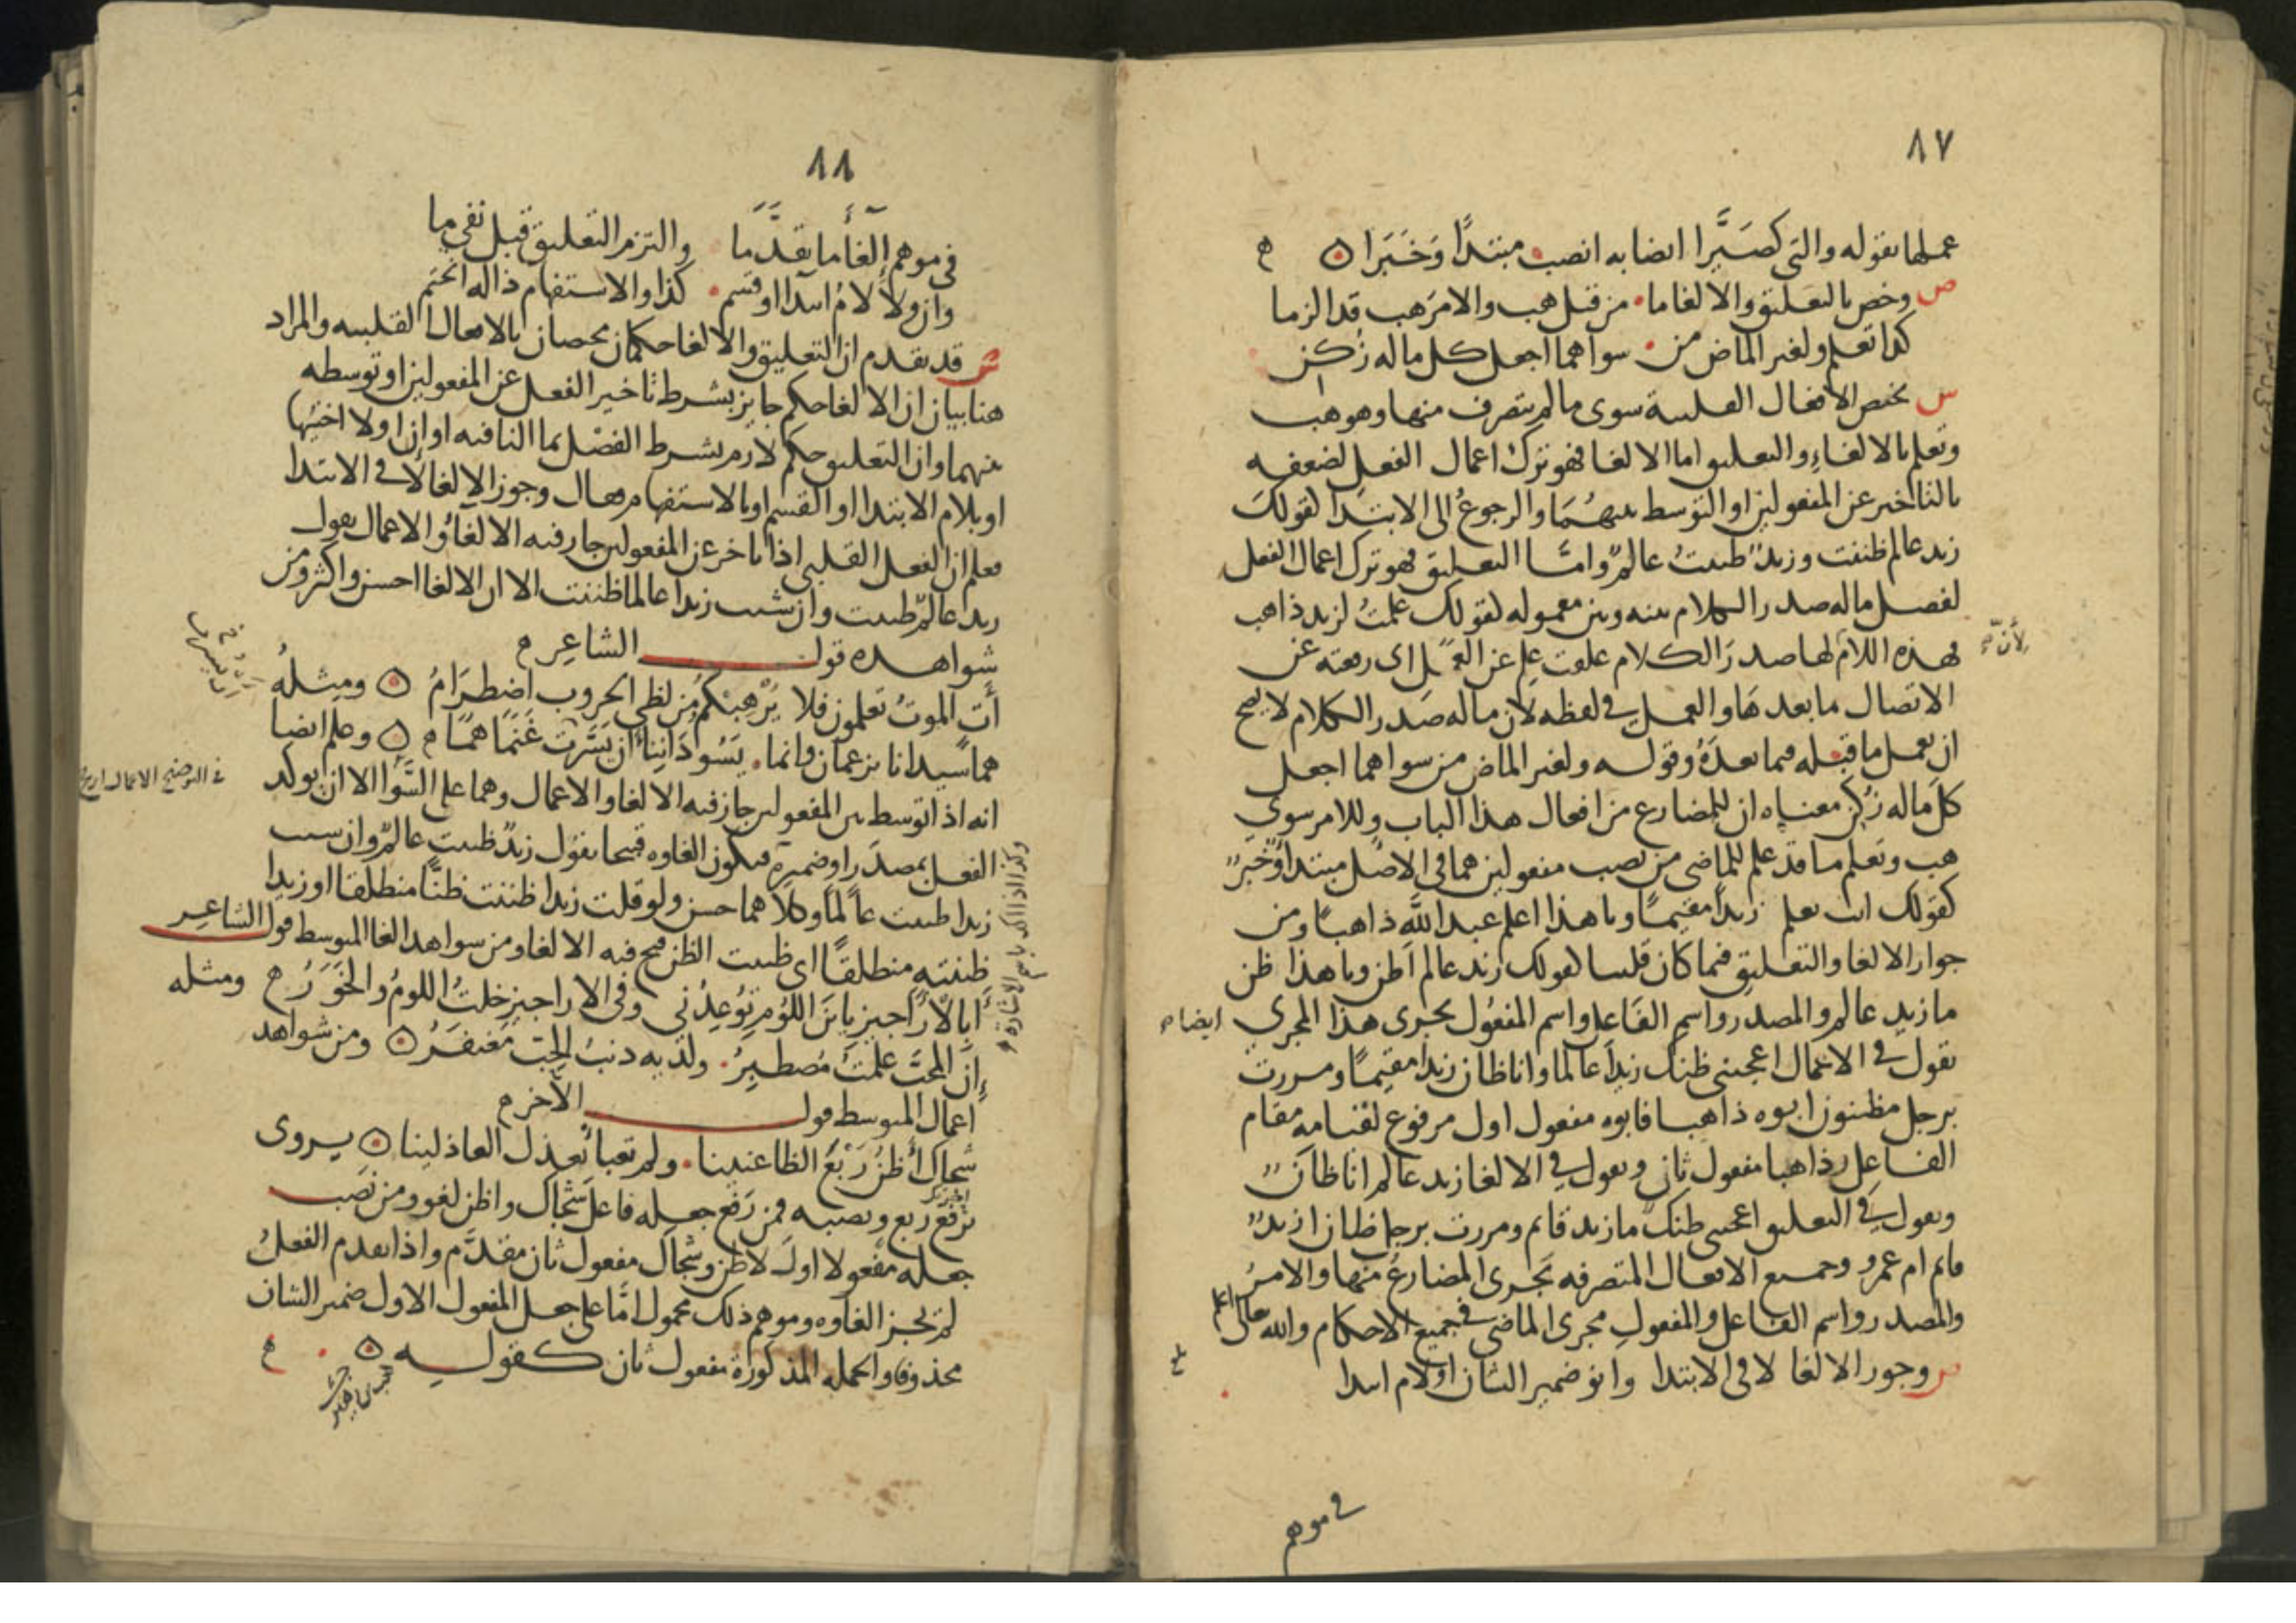 ٨٧
عملها بقوله والتي كصيرا ايضا به انصب مبتدأ وخبرا ه
ص وخص بالتعليق والالغا ما من قبل هب والامر هب قد الزما
كذا تعلم ولغير الماض من سواهما اجعل كل ماله زكن
س يختص الافعال القلبية سوى مالم يتصرف منها وهو هب
وتعلم بالالغاء والتعليق اما الالغا فهو ترك اعمال الفعل لضعفه
بالتاخير عن المفعولين او التوسط بينهما والرجوع الى الابتدا كقولك
زيد عالم ظننت وزيد ظننت عالم واما التعليق فهو ترك اعمال الفعل
لفصل ماله صدر الكلام بينه وبين معموله كقولك علمت لزيد ذاهب
فهذه اللام لها صدر الكلام علقت علم عن العمل اى رفعته عن
لأن
الاتصال ما بعدها والعمل في لفظه لان ماله صدر الكلام لا يصح
ان يعمل ما قبله فيما بعده وقوله ولغير الماض من سواهما اجعل
كل ماله زكن معناه ان للمضارع من افعال هذا الباب وللامر سوى
هب وتعلم ما قد علم للماضي من نصب مفعولين هما في الاصل مبتدا وخبر
كقولك انت تعلم زيدا مقيما ويا هذا اعلم عبد الله ذاهبا ومن
جواز الالغا والتعليق فيما كان قلبيا كقولك زيد عالم اظن ويا هذا ظن
ما زيد عالم والمصدر واسم الفاعل واسم المفعول يجرى هذا المجرى ايضا
تقول في الاعمال اعجبني ظنك زيدا عالما وانا ظان زيدا مقيما ومررت
برجل مظنون ابوه ذاهبا فابوه مفعول اول مرفوع لقيامه مقام
الفاعل وذاهبا مفعول ثان وتقول في الالغا زيد عالم انا ظان
وتقول في التعليق اعجبني ظنك ما زيد قائم ومررت برجل ظان ازيد
قايم ام عمرو وجميع الافعال المتصرفه يجرى المضارع منها والامر
والمصدر واسم الفاعل والمفعول مجرى الماضي في جميع الاحكام والله تعالى اعلم
ص وجوز الالغا لا في الابتدا وانو ضمير الشان او لام ابتدا
في موهم
٨٨
في موهم الغا ما تقدما والتزم التعليق قبل نفي ما
وان ولا لام ابتدا او قسم كذا والاستفهام ذا له انحتم
ش قد تقدم ان التعليق والالغا حكمان مختصان بالافعال القلبيه والمراد
هنا بيان ان الالغا حكم جايز بشرط تاخير الفعل عن المفعولين او توسطه
بينهما وان التعليق حكم لازم بشرط الفصل بما النافيه او ان او لا اختيها
او بلام الابتدا او القسم او بالاستفهام فقال وجوز الالغا لا في الابتدا
فعلم ان الفعل القلبي اذا تاخر عن المفعولين جاز فيه الالغا والاعمال تقول
زيد عالم ظننت وان شئت زيدا عالما ظننت الا ان الالغا احسن واكثر ومن
شواهده قول الشاعر
أت الموت تعلمون فلا يرهبكم من لظى الحروب اضطرام ه ومثله
هما سيدانا يزعمان وانما يسوداننا ان يسرت غنماهما ه وعلم ايضا
انه اذا توسط بين المفعولين جاز فيه الالغا والاعمال وهما على السوا الا ان يوكد
في التوضيح الاعمال ارجح
الفعل بمصدر او ضميره فيكون الغاوه قبيحا تقول زيد ظننت عالم وان شئت
زيدا ظننت عالما وكلاهما حسن ولو قلت زيدا ظننت ظنا منطلقا او زيدا
ظننته منطلقا اى ظننت الظن قبح فيه الالغا ومن شواهد الغا المتوسط قول الشاعر
وكذا اذا اكد باسم الاشارة
أبالاراجيز يابن اللؤم توعدني وفي الاراجيز خلت اللوم والخور ومثله
إن المحب علمت مصطبر ولديه ذنب الحب مغتفر ه ومن شواهد
اعمال المتوسط قول الآخر
شجاك أظن ربع الظاعنينا ولم تعبأ بعذل العاذلينا ه يروى
برفع ربع ونصبه فمن رفع جعله فاعل شجاك واظن لغو ومن نصب
جعله مفعولا اول لاظن وشجاك مفعول ثان مقدم واذا تقدم الفعل
لم يجز الغاوه وموهم ذلك محمول اما على جعل المفعول الاول ضمير الشان
محذوفا والجمله المذكورة مفعول ثان كقوله ه